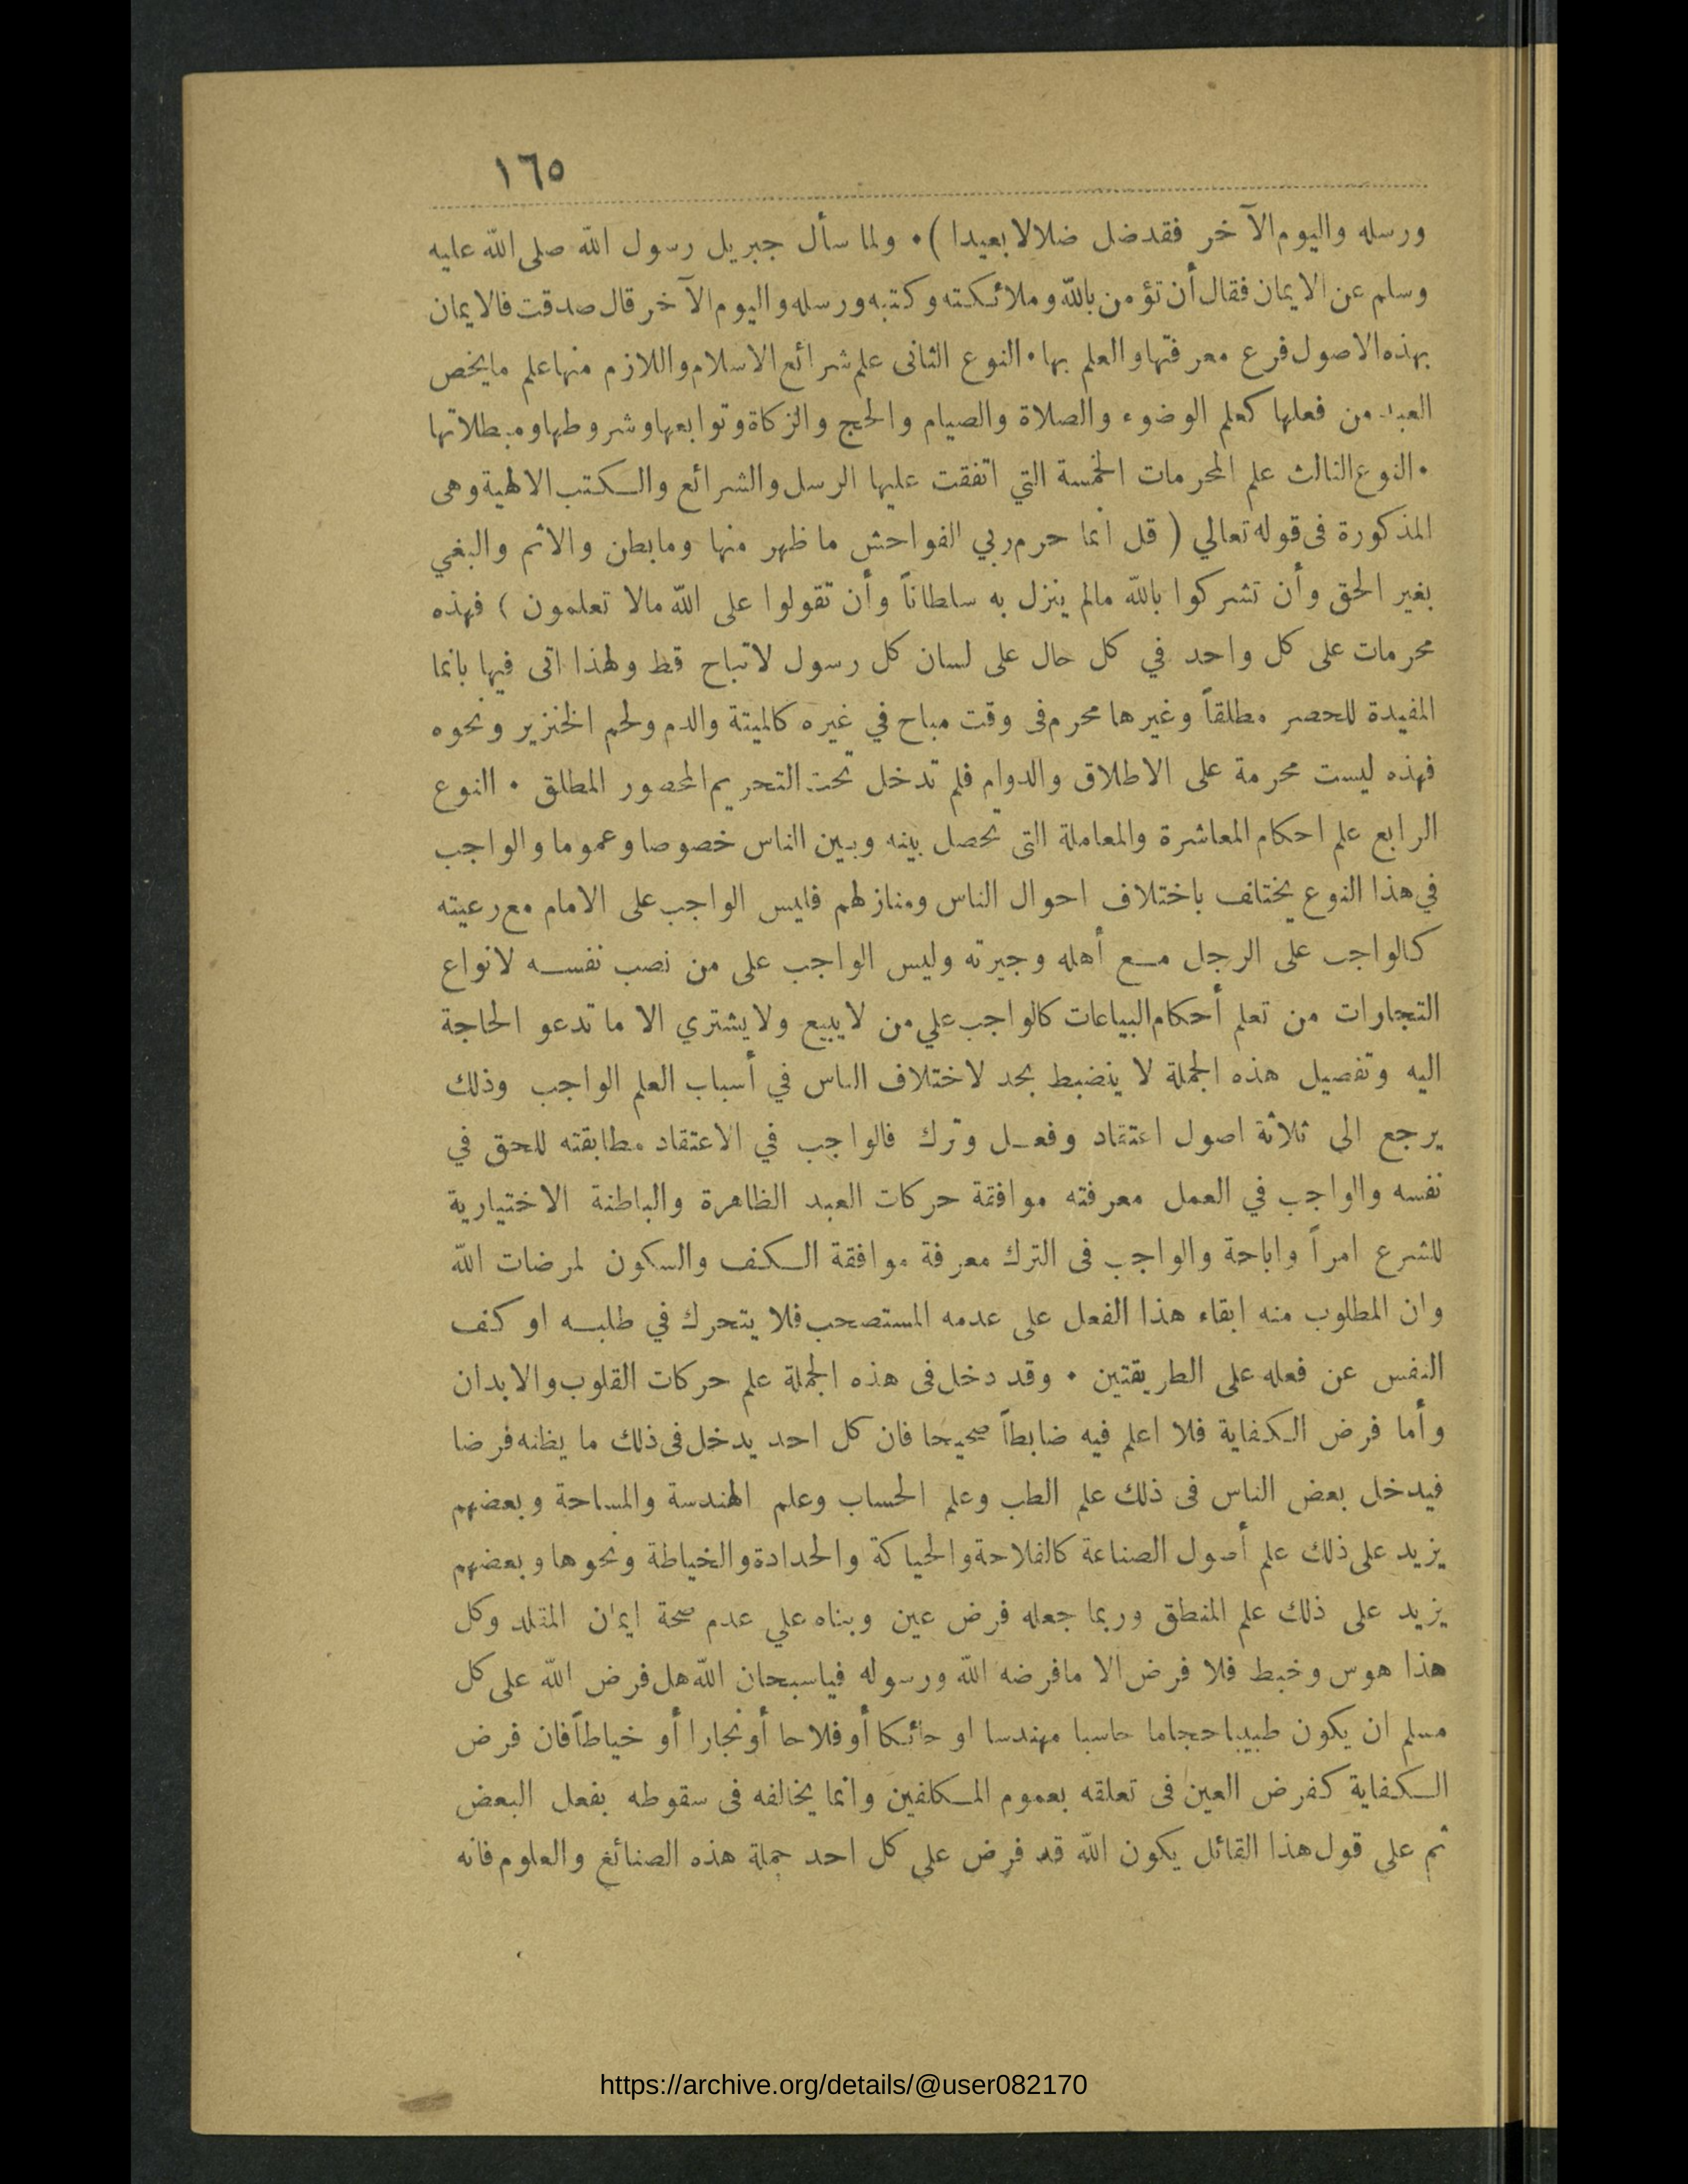 ١٦٥
ورسله واليوم الآخر فقد ضل ضلالا بعيدا ) • ولما سأل جبريل رسول الله صلى الله عليه
وسلم عن الايمان فقال أن تؤمن بالله وملائكته وكتبه ورسله واليوم الآخر قال صدقت فالايمان
بهذه الاصول فرع معرفتها والعلم بها • النوع الثانى علم شرائع الاسلام واللازم منها علم ما يخص
العبد من فعلها كعلم الوضوء والصلاة والصيام والحج والزكاة وتوابعها وشروطها ومبطلاتها
• النوع الثالث علم المحرمات الخمسة التي اتفقت عليها الرسل والشرائع والكتب الالهية وهى
المذكورة فى قوله تعالي ( قل انما حرم ربي الفواحش ما ظهر منها وما بطن والاثم والبغي
بغير الحق وأن تشركوا بالله مالم ينزل به سلطاناً وأن تقولوا على الله مالا تعلمون ) فهذه
محرمات على كل واحد في كل حال على لسان كل رسول لا تباح قط ولهذا اتى فيها بانما
المفيدة للحصر مطلقاً وغيرها محرم فى وقت مباح في غيره كالميتة والدم ولحم الخنزير ونحوه
فهذه ليست محرمة على الاطلاق والدوام فلم تدخل تحت التحريم المحصور المطلق • النوع
الرابع علم احكام المعاشرة والمعاملة التى تحصل بينه وبين الناس خصوصا وعموما والواجب
في هذا النوع يختلف باختلاف احوال الناس ومنازلهم فليس الواجب على الامام مع رعيته
كالواجب على الرجل مع أهله وجيرته وليس الواجب على من نصب نفسه لانواع
التجارات من تعلم أحكام البياعات كالواجب علي من لا يبيع ولا يشتري الا ما تدعو الحاجة
اليه وتفصيل هذه الجملة لا ينضبط بحد لاختلاف الناس في أسباب العلم الواجب وذلك
يرجع الى ثلاثة اصول اعتقاد وفعل وترك فالواجب في الاعتقاد مطابقته للحق في
نفسه والواجب في العمل معرفته موافقة حركات العبد الظاهرة والباطنة الاختيارية
للشرع امراً واباحة والواجب فى الترك معرفة موافقة الكف والسكون لمرضات الله
وان المطلوب منه ابقاء هذا الفعل على عدمه المستصحب فلا يتحرك في طلبه او كف
النفس عن فعله على الطريقتين • وقد دخل فى هذه الجملة علم حركات القلوب والابدان
وأما فرض الكفاية فلا اعلم فيه ضابطاً صحيحا فان كل احد يدخل فى ذلك ما يظنه فرضا
فيدخل بعض الناس فى ذلك علم الطب وعلم الحساب وعلم الهندسة والمساحة وبعضهم
يزيد على ذلك علم أصول الصناعة كالفلاحة والحياكة والحدادة والخياطة ونحوها وبعضهم
يزيد على ذلك علم المنطق وربما جعله فرض عين وبناه علي عدم صحة ايمان المقلد وكل
هذا هوس وخبط فلا فرض الا ما فرضه الله ورسوله فياسبحان الله هل فرض الله على كل
مسلم ان يكون طبيبا حجاما حاسبا مهندسا او حائكا أو فلاحا أو نجارا أو خياطاً فان فرض
الكفاية كفرض العين فى تعلقه بعموم المكلفين وانما يخالفه فى سقوطه بفعل البعض
ثم علي قول هذا القائل يكون الله قد فرض على كل احد جملة هذه الصنائع والعلوم فانه
https://archive.org/details/@user082170